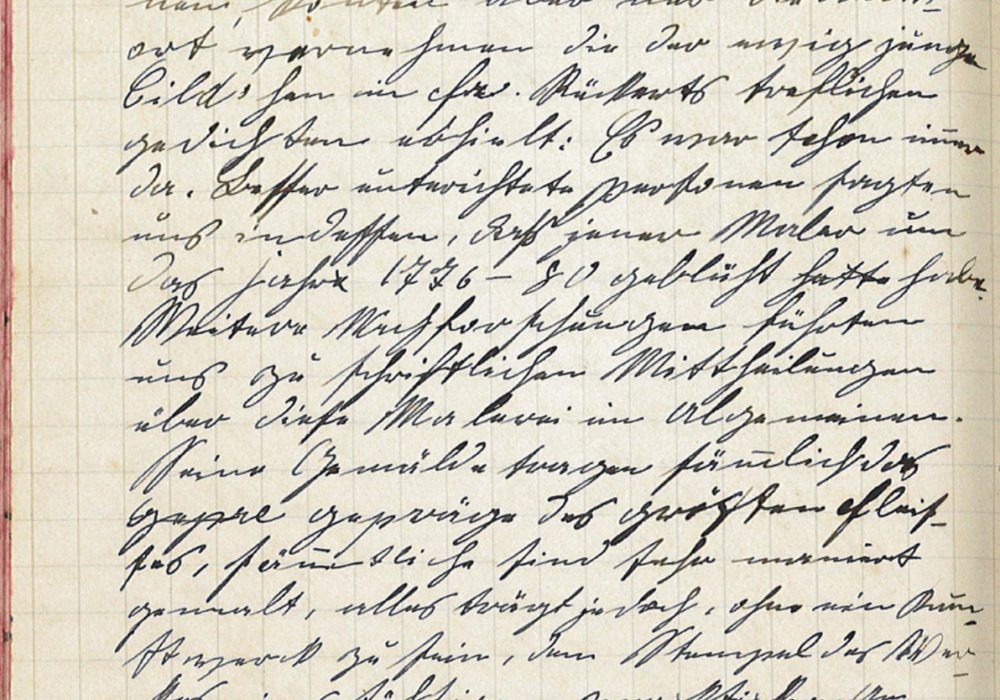 nen, konten aber nur die Ant-
ort vernehmen die der ewig junge
Childhar in Frd. Rückerts treflichen
gedichten erhielt: Es war schon im̅er
da. Besser unterichtete personen sagten
uns indessen, daß jener Maler um
das jahr 1776 – 80 geblüht hatte habe.
Weitere Nachforschungen führten
uns zu schriftlichen Mittheilungen
über diese Malerei im Algemeinen.
Seine Gemälde tragen säm̅lich das
gepre gepräge des größten Fleis-
ses, säm̅tliche sind sehr maniert
gemalt, alles trägt jedoch, ohne ein Kun-
stwerk zu sein, den Stempel des Wer-